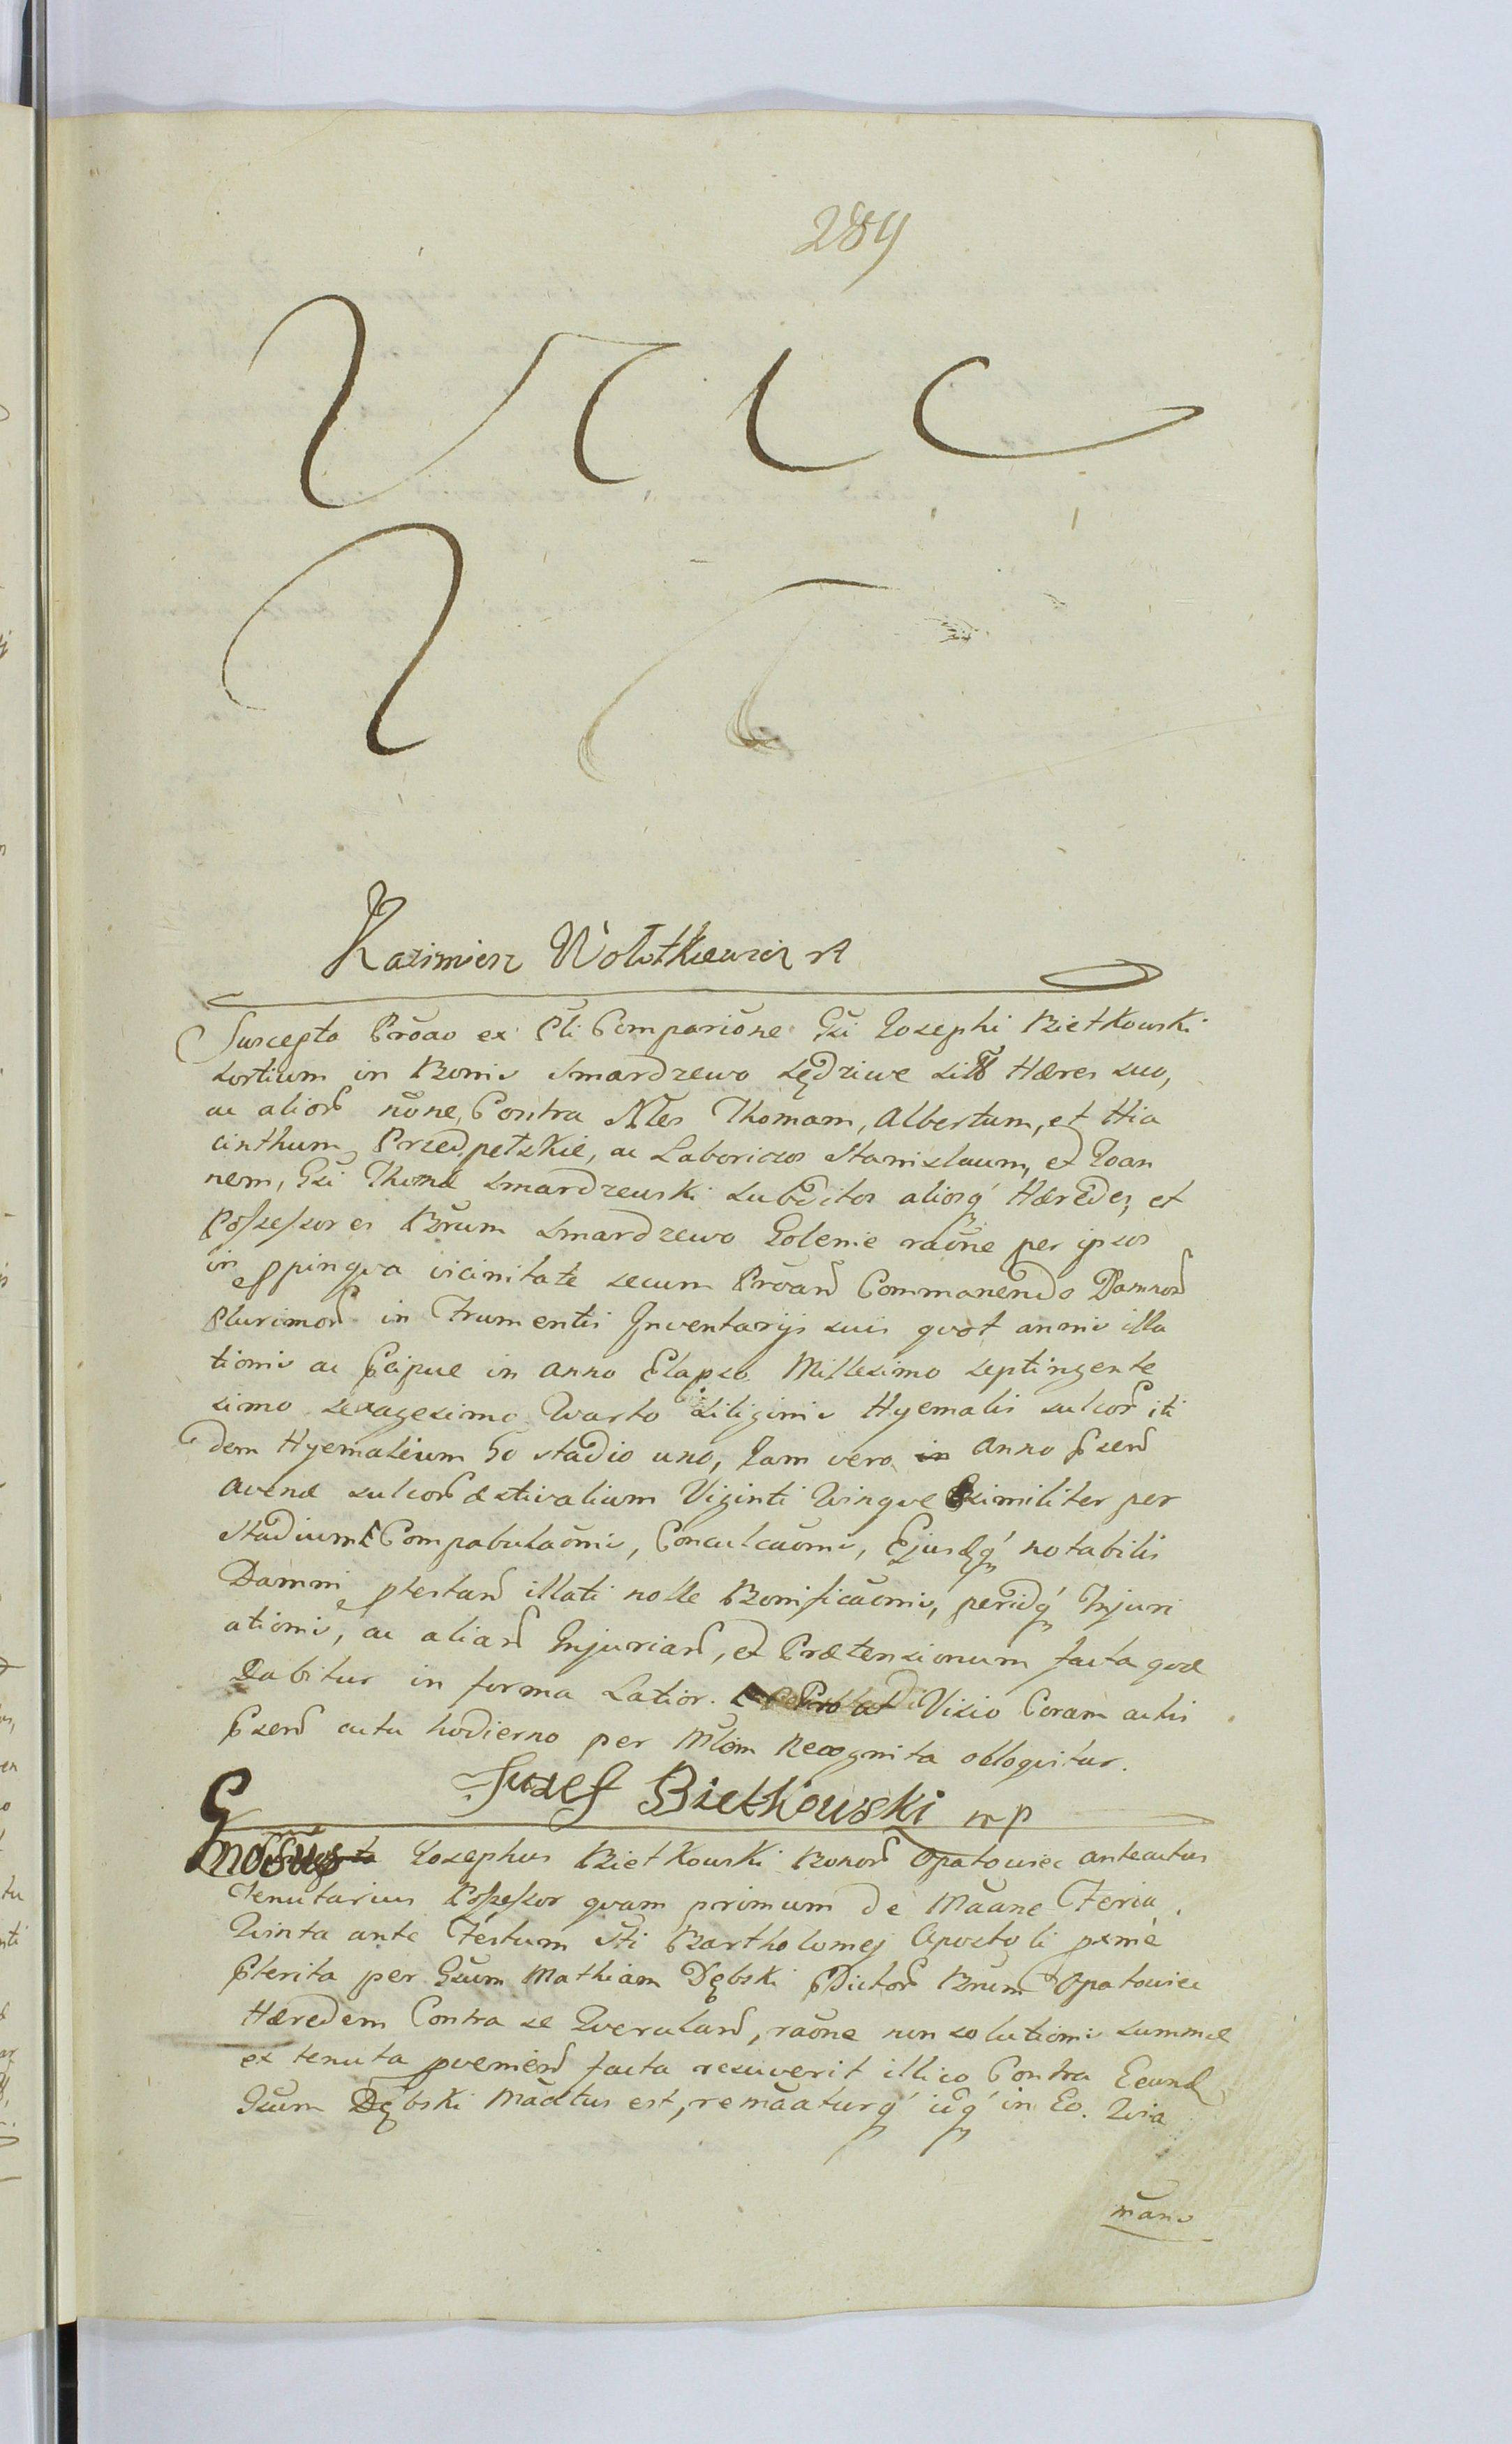 289
Kazimierz Wołotkiewicz
Suscepta Prõao ex Pti Compariõne Gsi Josephi Bietkowski
sortium in Bonis Smardzewo Sędziwe sitt Hæres suo,
ac alior nõne, Contra Nles Thomam, Albertum, et Hia
cinthum Przedpełskie, ac Laboriosos Stanislaum, et Joan
nem, Gsi Thomæ Smardzewski subditos aliosq́ Hæredes, et
Possessores Brum Smardzewo Golenie raõne per ipsos
in ppinqva vicinitate secum Prõand Commanendo Damnor
Plurimor in Frumentis Inventarijs suis qvot annis illa
tionis ac Pcipue in anno Elapso Millesimo septingente
simo sexagesimo Qvarto Siliginis Hyemalis sulcor iti
dem Hyemalium 50 stadio uno, Jam vero in Anno Psend
Avenæ sulcor æstivalium Viginti Qvinqve similiter per
stadium Compabulaõnis, Conculcaõnis, Ejusdq́ notabilis
Damni ptestand illati nolle Bonificaõnis, peridq́ Injuri
ationis, ac aliard Injuriard, et Prætensionum facta qvæ
Dabitur in forma Latior. Visio Coram actis
Psend actu hodierno per Mlem Recognita obloqvitur.
Juzef Bietkowski mp
Gnosus Josephus Bietkowski Bonor Opatowiec anteactus
Tenutarius Possessor qvam primum de Mãane Feria
Qvinta ante Festum Sti Bartholomej Apostoli pxme
Pterita per Gsum Mathiam Dębski Pdictor Brum Opatowiec
Hæredem Contra se Qveruland, raõne non solutionis summæ
ex tenuta pveniend facta resciverit illico Contra Eeund
Gsum Dębski Mãaetus est, remãaturq́ idq́ in Eo. Qvia
mãns